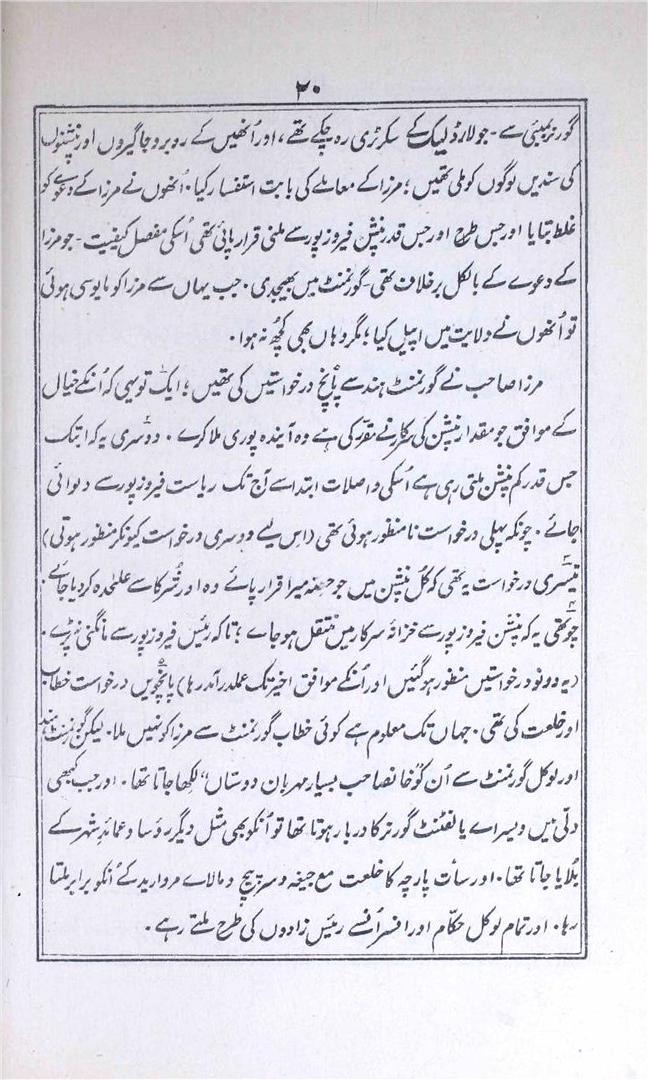 ۲۰
گورنر بمبئی سے - جو لارڈ لیک کے سکرٹری رہ چکے تھے، اور اُنھیں کے روبرو جاگیروں اور پنشنوں
کی سندیں لوگوں کو ملی تھیں؛ مرزا کے معاملے کی بابت استفسار کیا۰ اُنھوں نے مرزا کے دعوے کو
غلط بتایا اور جس طرح اور جس قدر پنشن فیروزپور سے ملنی قرار پائی تھی اُسکی مفصل کیفیت - جو مرزا
کے دعوے کے بالکل برخلاف تھی - گورنمنٹ میں بھیجدی۰ جب یہاں سے مرزا کو مایوسی ہوئی
تو اُنھوں نے ولایت میں اپیل کیا؛ مگر وہاں بھی کچھ نہ ہوا۰
مرزا صاحب نے گورنمنٹ ہند سے پانچ درخواستیں کی تھیں؛ ایک تو یہی کہ اُنکے خیال
کے موافق جو مقدار پنشن کی سرکار نے مقرر کی ہے وہ آیندہ پوری ملا کرے۰ دوسری یہ کہ ابتک
جس قدر کم پنشن ملتی رہی ہے اُسکی واصلات ابتدا سے آج تک ریاست فیروزپور سے دلوائی
جائے۰ چونکہ پہلی درخواست نامنظور ہوئی تھی (اس لیے دوسری درخواست کیونکر منظور ہوتی)
تیسری درخواست یہ تھی کہ کُل پنشن میں جو حصہ میرا قرار پائے وہ اور شُرکا سے علٰحدہ کردیا جائے۰
چوتھی یہ کہ پنشن فیروزپور سے خزانۂ سرکار میں منتقل ہو جاے؛ تاکہ رئیس فیروزپور سے مانگنی نہ پڑے۰
(یہ دونو درخواستیں منظور ہوگئیں اور اُنکے موافق اخیر تک عملدرآمد رہا) پانچویں درخواست خطاب
اور خلعت کی تھی۰ جہاں تک معلوم ہے کوئی خطاب گورنمنٹ سے مرزا کو نہیں ملا۰ لیکن گورنمنٹ ہند
اور لوکل گورنمنٹ سے اُن کو "خانصاحب بسیار مہربان دوستاں" لکھا جاتا تھا۰ اور جب کبھی
دلّی میں ویسراے یا لفٹنٹ گورنر کا دربار ہوتا تھا تو اُنکو بھی مثل دیگر رؤسا و عمائدِ شہر کے
بُلایا جاتا تھا۰ اور سات پارچہ کا خلعت مع جیغہ و سرپیچ و مالاے مروارید کے اُنکو برابر ملتا
رہا۰ اور تمام لوکل حکّام اور افسر اُنسے رئیس زادوں کی طرح ملتے رہے۰